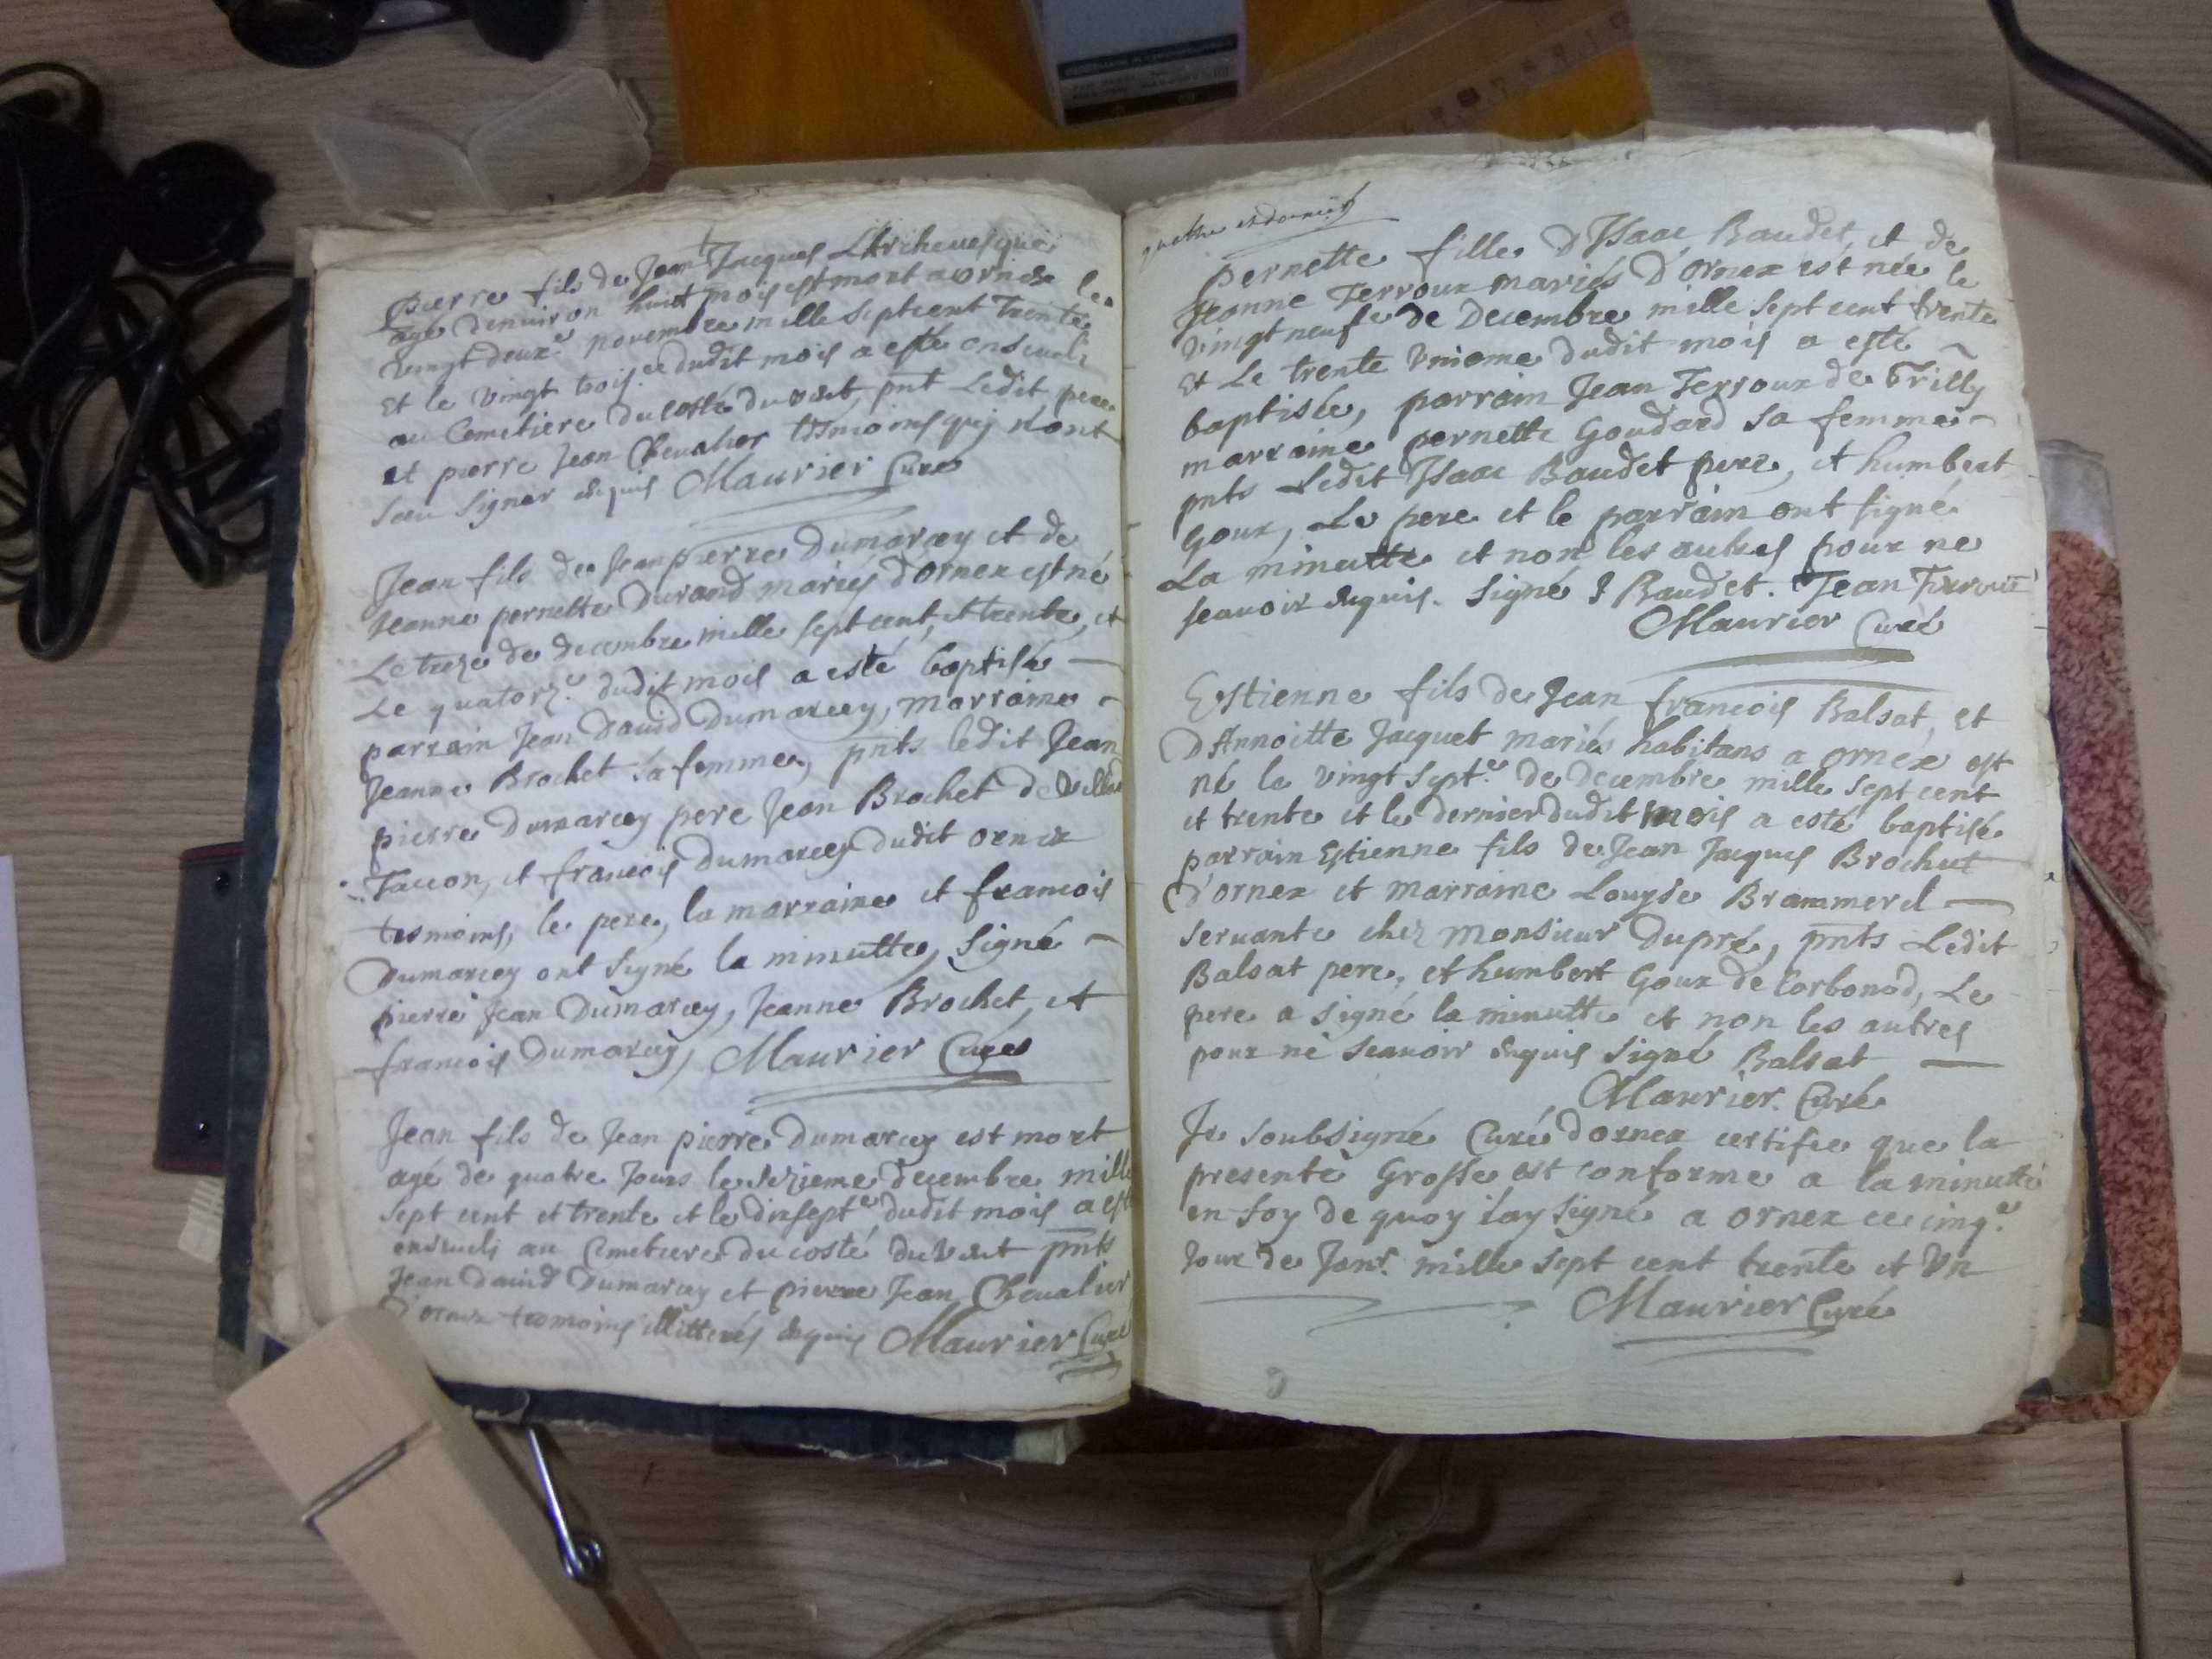 pierre fils de Jean Jacques L'Archeuesque
agé denuiron huict mois est mort a ornex le
vingt deuxe novembre mille sept cent trente
et le vingt trois.e dudit mois a esté enseueli
au Cemetiere du costé du vent, pnt Ledit pere
et pierre Jean Cheualier tesmoins qui n'ont
sceu signer enquis Maurier Curé
Jean fils de Jean pierre Dumarcey et de
Jeanne pernette Durand mariés d'ornex est né
Le treze de decembre mille sept cent, et trente, et
Le quatorz.e dudit mois a esté baptisé
parrain Jean Dauid Dumarcey, marraine
Jeanne Brochet sa femme, pnts ledit Jean
pierre Dumarcey pere Jean Brochet de Villard
Taccon, et francois Dumarcey dudit ornex
tesmoins, le pere, la marraine et francois
Dumarcey ont signé la minutte, Signé
pierre Jean Dumarcey, Jeanne Brochet, et
francois Dumarcey, Maurier Curé
Jean fils de Jean pierre Dumarcey est mort
agé de quatre Jours le sezieme decembre mille
sept cent et trente et le dixsept.e dudit mois a esté
enseueli au Cemetiere du costé du vent pnts
Jean Dauid Dumarcey et pierre Jean Cheualier
d'ornex tesmoins illitterés enquis Maurier Curé
pernette fille D'Isaac Baudet, et de
Jeanne Terroux mariés D'ornex est née le
vingt neufe de Decembre mille sept cent trente
et Le trente vnieme dudit mois a esté
baptisée, parrain Jean Terroux de Trilly
marraine pernette Goudard sa femme
pnts Ledit Isaac Baudet pere, et humbert
Goux, Le pere et le parrain ont signé
La minutte et non les autres pour ne
scauoir enquis. Signé I Baudet. Jean Terroux
Maurier Curé
Estienne fils de Jean francois Balsat, et
D'Annoitte Jacquet mariés habitans a ornex est
né le vingt sept.e de decembre mille sept cent
et trente et le dernier dudit mois a esté baptisé
parrain Estienne fils de Jean Jacques Brochut
d'ornex et marraine Louyse Brammerel
seruante chez monsieur Dupré, pnts Ledit
Balsat pere, et humbert Goux de Corbonod, Le
pere a signé la minutte et non les autres
pour ne scauoir enquis signé Balsat
Maurier. Curé
Je soubsigné Curé d'ornex certifie que la
presente Grosse est conforme a la minutte
en foy de quoy i'ay signé a ornex ce cinq.e
Jour de Janr. mille sept cent trente et vn
Maurier Curé